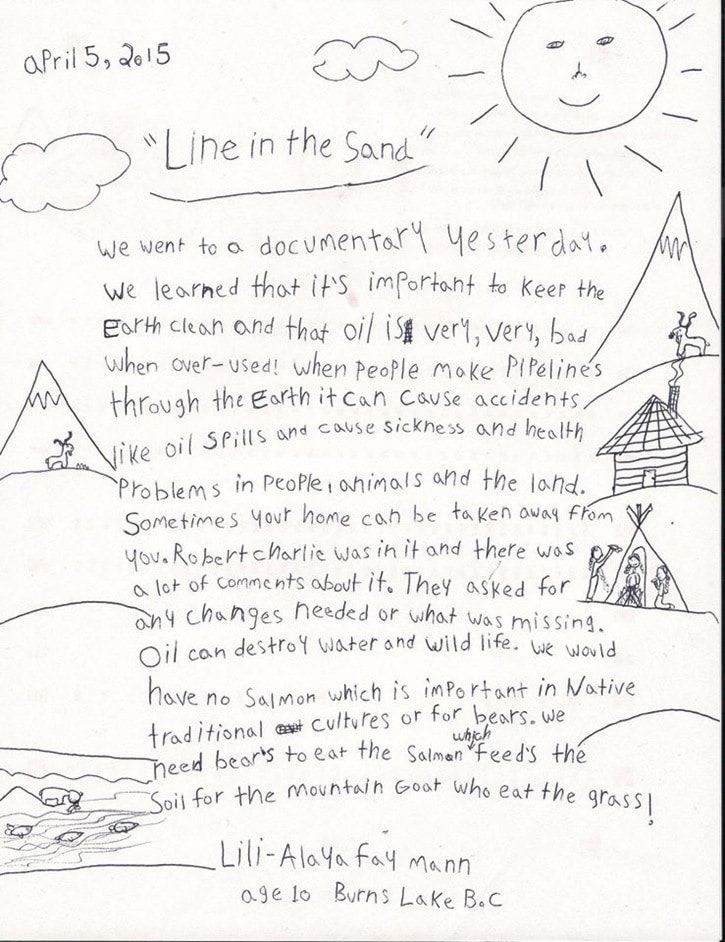 april 5, 2015
"Line in the Sand"
we went to a documentary yesterday.
We learned that it's important to keep the
Earth clean and that oil is very, very, bad
when over-used! when people make pipelines
through the Earth it can cause accidents
like oil spills and cause sickness and health
problems in people, animals and the land.
Sometimes your home can be taken away from
you. Robert charlie was in it and there was
a lot of comments about it. They asked for
any changes needed or what was missing.
Oil can destroy water and wild life. we would
have no salmon which is important in Native
traditional cultures or for bears. we
need bear's to eat the salmon which feed's the
Soil for the mountain Goat who eat the grass!
Lili-Alaya fay mann
age 10 Burns Lake B.C